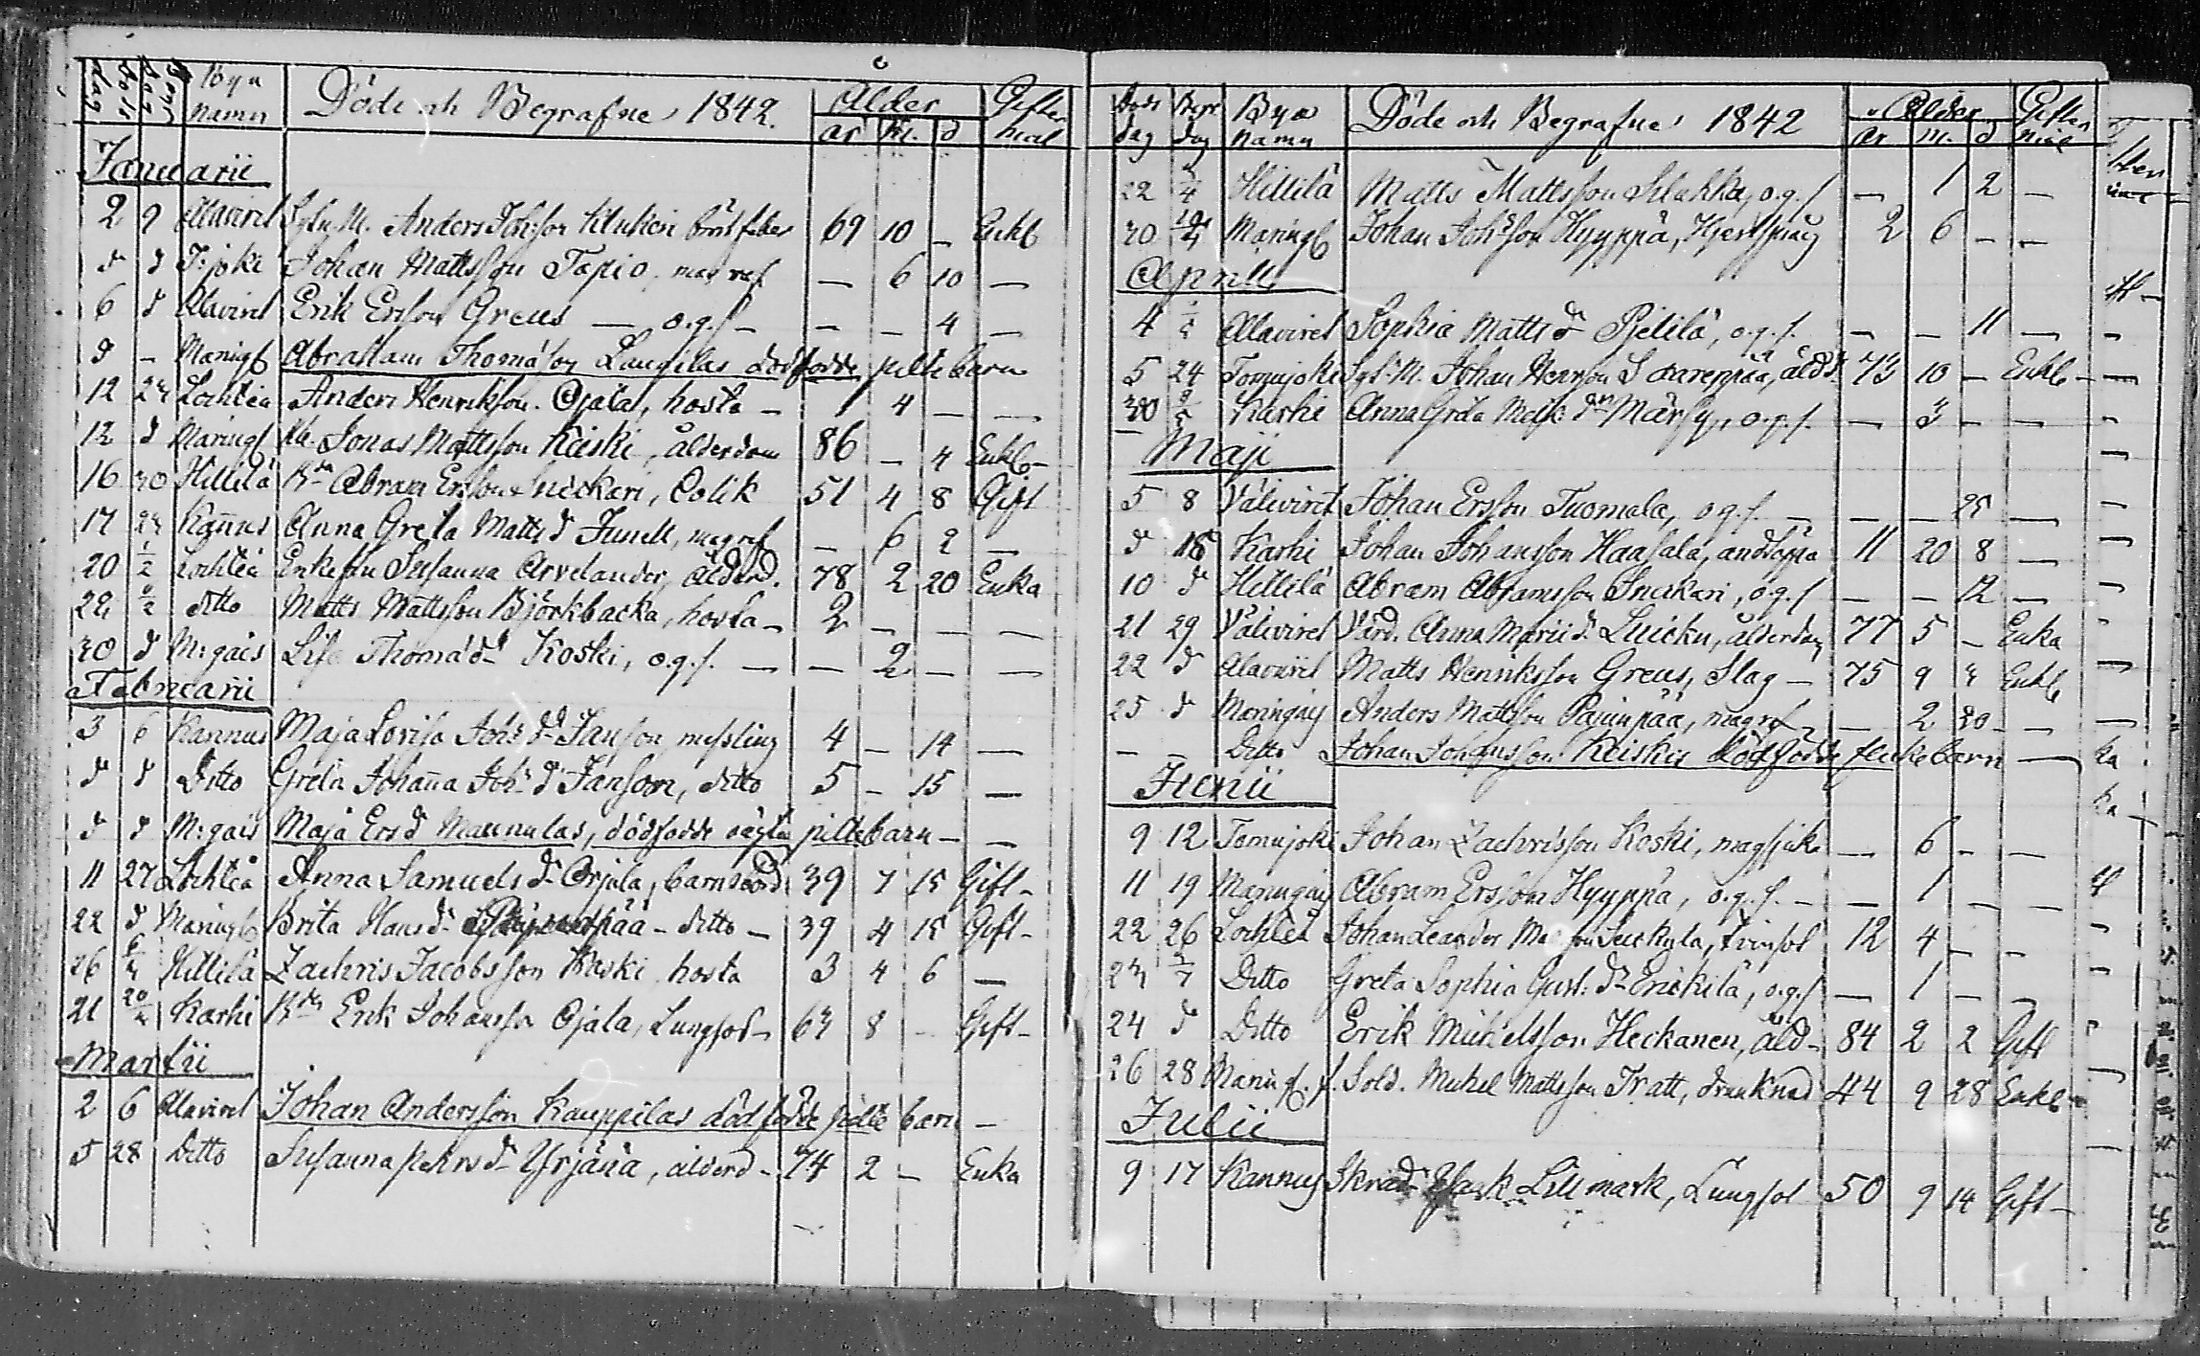 Döds dag Begr dag Bya namn Döde och Begrafne 1842. Ålder år M. d Gifter mål
Januarii
2 9 Alaviret Anders Johsson bröstfeber 69 10 — Enkl
d d T:joki Johan Mattsson Tapio, magref — 6 10 —
6 d Alaviret Erik Ersson Greus — o.g.s — — — 4 —
d — Marings Abraham Thomasson Laurilas dödfödde piltebarn
12 23 Lochteå Anders Henriksson Ojala, hosta — 1 4 — —
12 d Marings Jonas Mattsson Keiski, ålderdom 86 — 4 Enkl —
16 30 Hillilä Bdn Abram Ersson Snickari, Colik 51 4 8 Gift
17 23 Kannus Anna Greta Matts d Junell, magref — 6 2 —
20 1/2 Lochteå Enkefru Susanna Arvelander, ålderd. 78 2 20 Enka
22 6/2 ditto Matts Mattsson Björkbacka, hosta — 2 — — —
30 d M:gäis Lisa Thomæ d Koski, o.g.s. — — 2 — —
Februarii
3 6 Kannus Maja Lovisa Johs d Janson, messling 4 — 14 —
d d Ditto Greta Johanna Joh d Janson, ditto 5 — 15 —
d d M:gäis Maja Ers d Maunulas, dödfödde oägta piltebarn — —
11 27 Lochteå Anna Samuels d Orjala, barnsbörd 39 7 15 Gift —
22 d Maringb Brita Hans d — ditto — 39 4 15 Gift —
26 6/3 Hillilä Zachris Jacobsson Koski, hosta 3 4 6 —
21 20/3 Karhi Bdn Erik Johansson Ojala, Lungsot — 63 8 — Gift —
Martii
2 6 Alaviret Johan Andersson Kauppilas dödfödde pilte barn —
5 28 Ditto Susanna Pehrs d Yrjänä, ålderd — 74 2 — Enka
Döds dag Begr dag Bya namn Döde och Begrafne 1842 Ålder år m. d Giftermål
22 /4 Hillilä Matts Mattsson, o.g.s — 1 2 —
30 /4 Maringb Johan Johsson Hyyppä, Hjertsprång 2 6 — —
Aprill
4 Alaviret Sophia Matts d Pietilä, o.g.s. — — 11 —
5 24 Tomujoki Johan Henrsson Saarenpää, ålderd 73 10 — Enkl —
30 8/5 Karhi Anna Greta Märsy, o.g.s. — 3 — —
Maji
5 8 Väliviret Johan Ersson Tuomala, o.g.s. — — — 25 —
d 15 Karhi Johan Johansson Haasala, andtäppa 11 20 8 —
10 d Hillilä Abram Abramsson Snickari, o.g.s — — 12 —
21 29 Väliviret Värd. Anna Marii d Luicku, ålderdom 77 5 — Enka
22 d Alaviret Matts Henriksson Greus, Slag — 75 9 3 Enkl
25 d Maringäis Anders Mattsson, magref — — 2 20 —
— — Ditto Johan Johansson Keiskis dödfödde flickebarn —
Junii
9 12 Tomujoki Johan Zachrisson Koski, magsjuka — 6 — —
11 19 Maringäis Abram Ersson Hyyppä, o.g.s. — — 1 — —
22 26 Lochteå Johan Leander, Tvinsot 12 4 — —
23 3/7 Ditto Greta Sophia Gust: d Erickilä, o.g.s — 1 — —
24 d Ditto Erik Michelsson Heckanen, åld — 84 2 2 Gift
26 28 Maringb. f. Sold. Michel Mattsson Tratt, drunknad 44 9 28 Enkl —
Julii
9 17 Kannus Skräd Isack Lillmark, Lungsot 50 9 14 Gift —